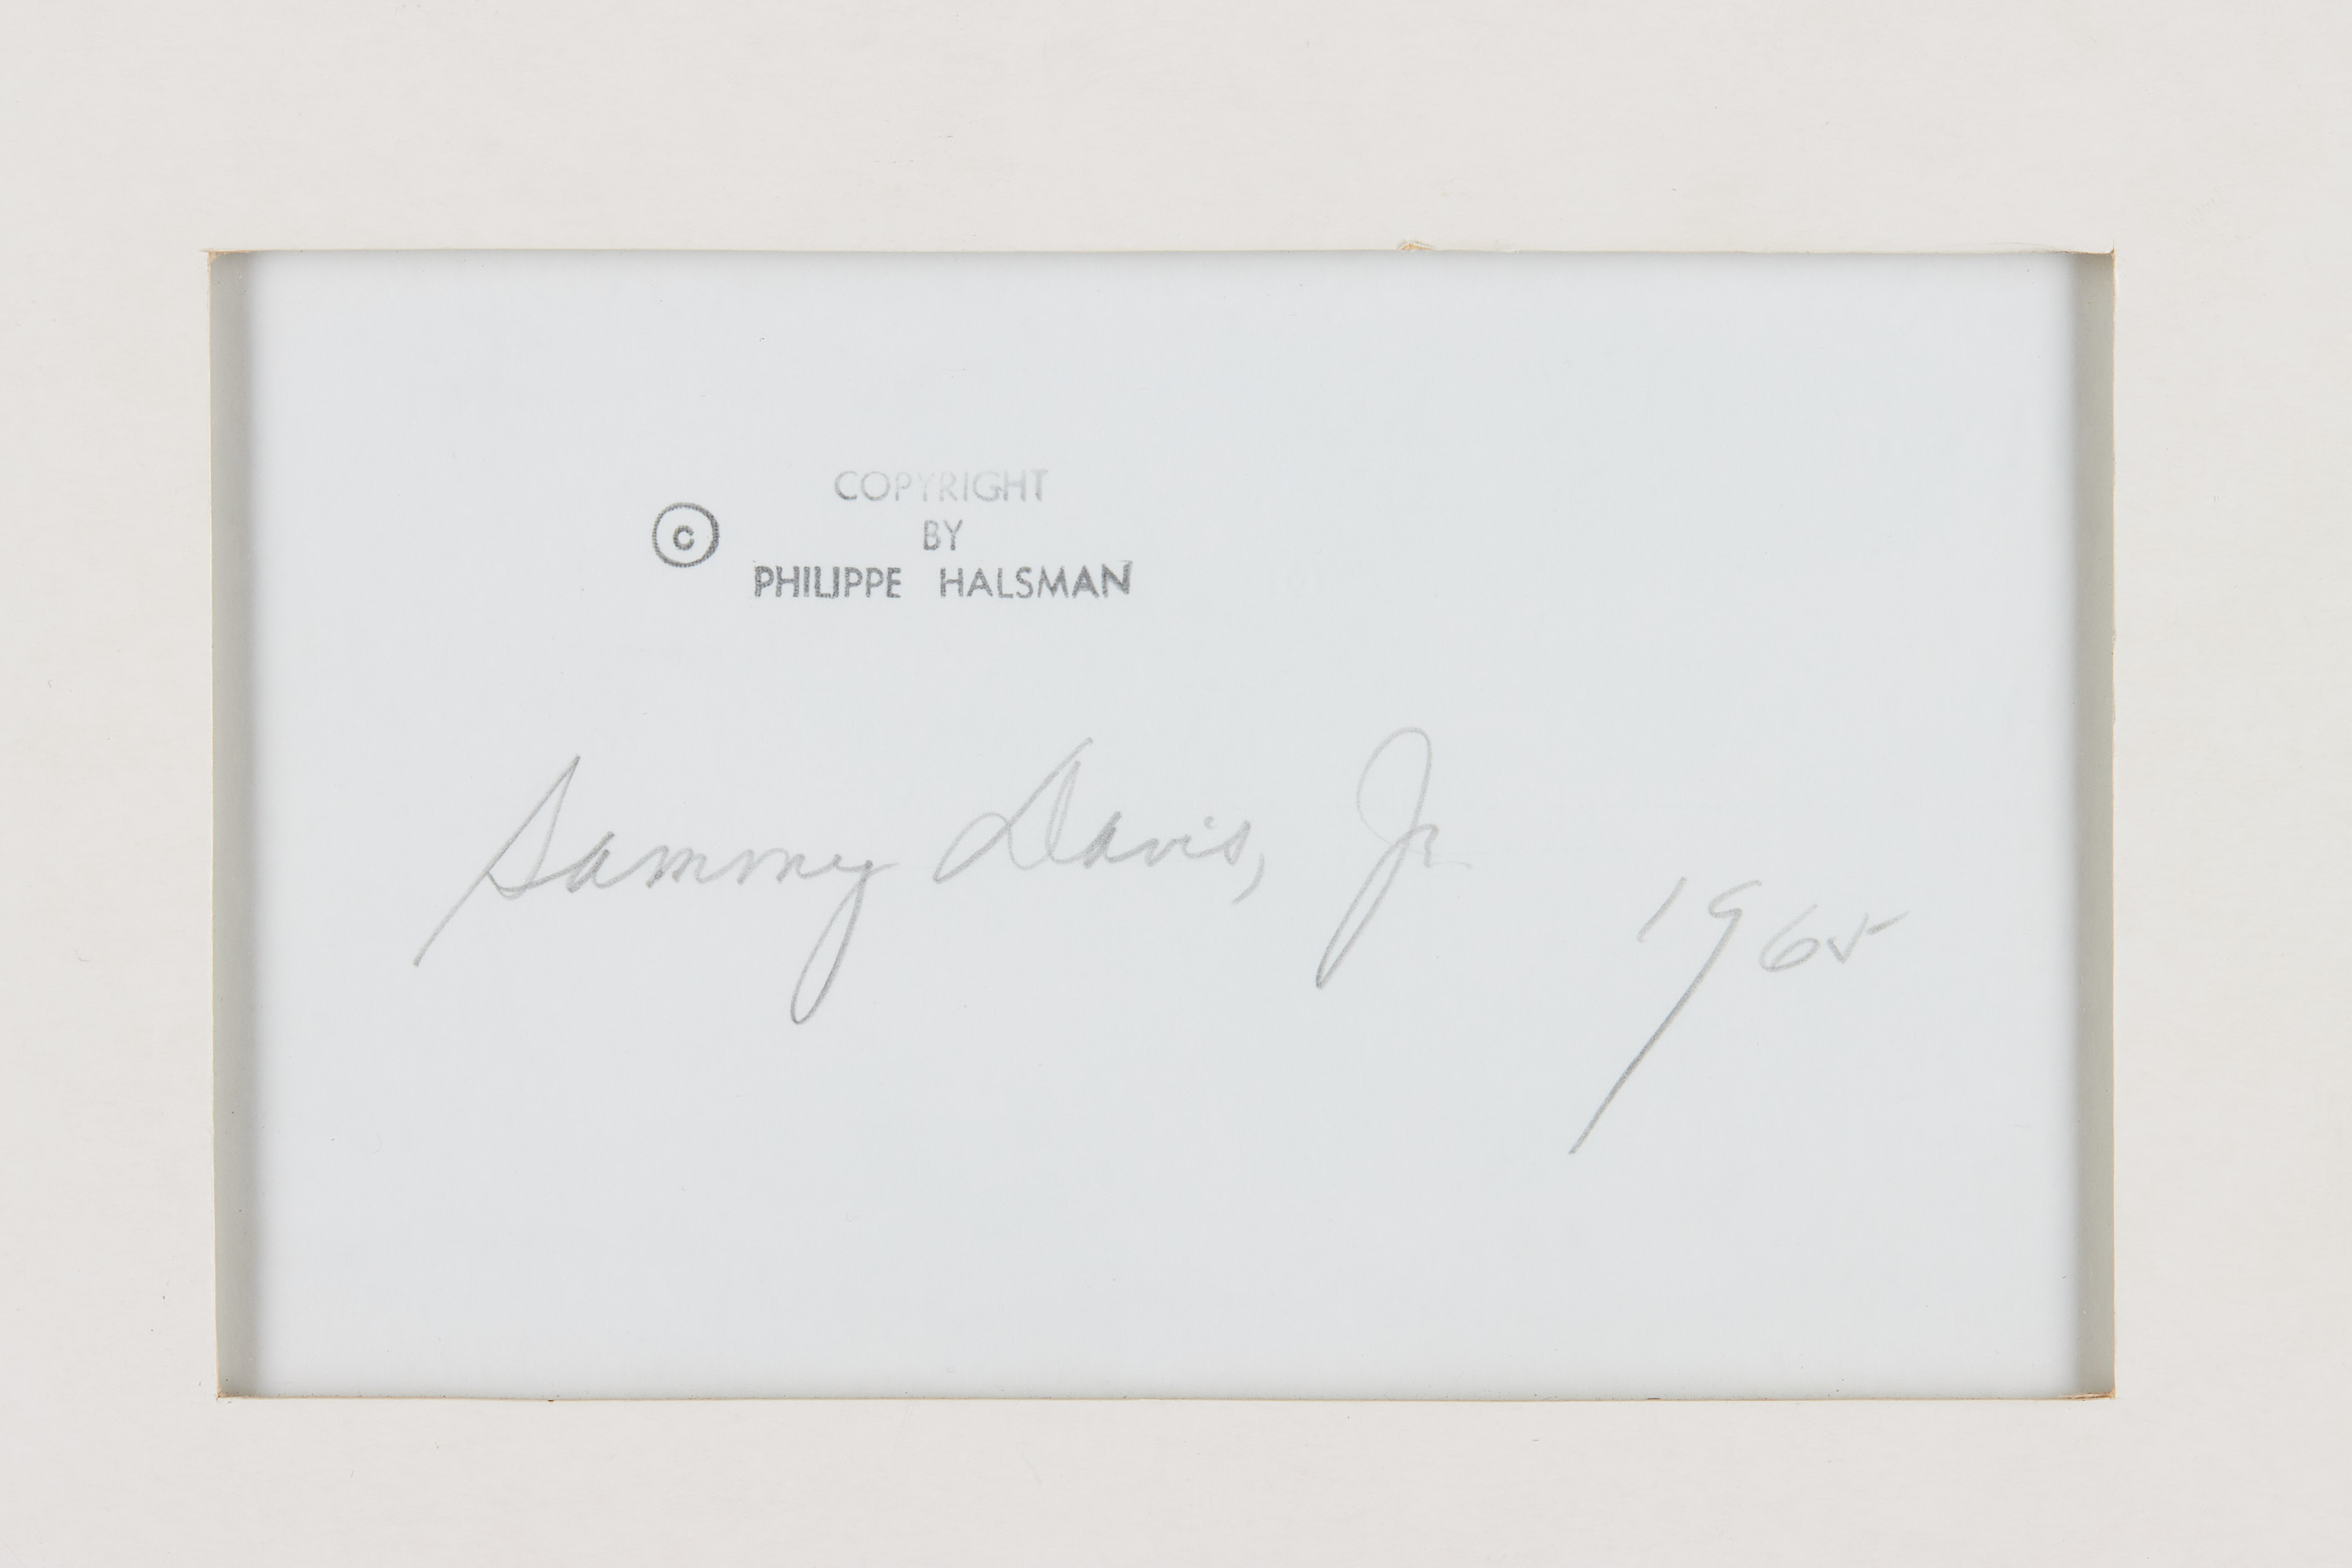 COPYRIGHT
© BY
PHILIPPE HALSMAN
Sammy Davis, Jr
1965